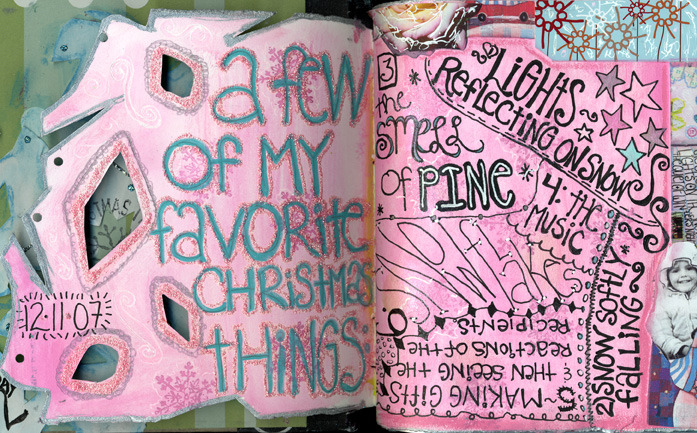 a few
OF MY
favORite
CHRiStmas
tHiNGS:
12.11.07.
LiGHTS
REFLECTING ON SNOW
3
the
smell
of PINE
4: the
MUSiC
SNOWflakes
6.
2) SNOW SOFTLY
falling
5 MAKING GIFTS
& then SEEING the
REACTiONS OF the
RECiPiENTS